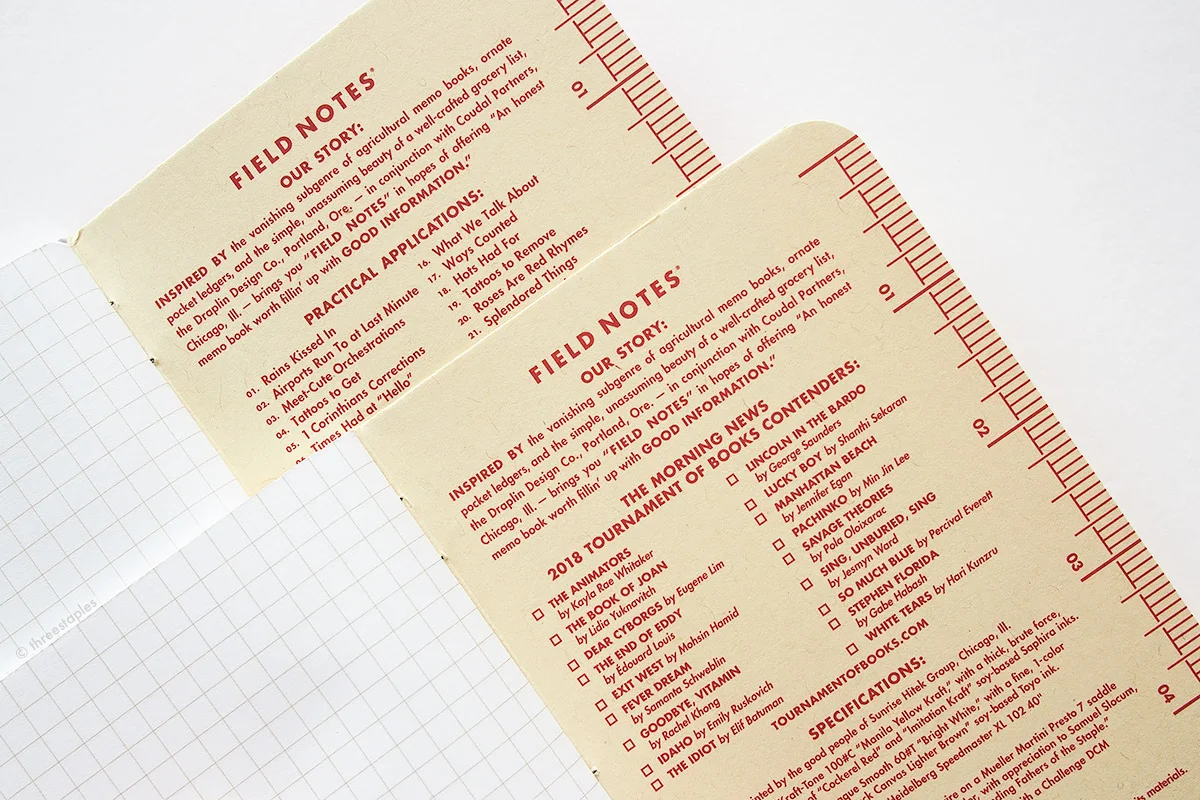 FIELD NOTES®
OUR STORY:
INSPIRED BY the vanishing subgenre of agricultural memo books, ornate
pocket ledgers, and the simple, unassuming beauty of a well-crafted grocery list,
the Draplin Design Co., Portland, Ore. — in conjunction with Coudal Partners,
Chicago, Ill. — brings you "FIELD NOTES" in hopes of offering "An honest
memo book worth fillin' up with GOOD INFORMATION."
PRACTICAL APPLICATIONS:
01. Rains Kissed In
02. Airports Run To at Last Minute
03. Meet-Cute Orchestrations
04. Tattoos to Get
05. 1 Corinthians Corrections
06. Times Had at "Hello"
16. What We Talk About
17. Ways Counted
18. Hots Had For
19. Tattoos to Remove
20. Roses Are Red Rhymes
21. Splendored Things
01
FIELD NOTES®
OUR STORY:
INSPIRED BY the vanishing subgenre of agricultural memo books, ornate
pocket ledgers, and the simple, unassuming beauty of a well-crafted grocery list,
the Draplin Design Co., Portland, Ore. — in conjunction with Coudal Partners,
Chicago, Ill. — brings you "FIELD NOTES" in hopes of offering "An honest
memo book worth fillin' up with GOOD INFORMATION."
THE MORNING NEWS
2018 TOURNAMENT OF BOOKS CONTENDERS:
THE ANIMATORS
by Kayla Rae Whitaker
THE BOOK OF JOAN
by Lidia Yuknavitch
DEAR CYBORGS by Eugene Lim
THE END OF EDDY
by Édouard Louis
EXIT WEST by Mohsin Hamid
FEVER DREAM
by Samanta Schweblin
GOODBYE, VITAMIN
by Rachel Khong
IDAHO by Emily Ruskovich
THE IDIOT by Elif Batuman
LINCOLN IN THE BARDO
by George Saunders
LUCKY BOY by Shanthi Sekaran
MANHATTAN BEACH
by Jennifer Egan
PACHINKO by Min Jin Lee
SAVAGE THEORIES
by Pola Oloixarac
SING, UNBURIED, SING
by Jesmyn Ward
SO MUCH BLUE by Percival Everett
STEPHEN FLORIDA
by Gabe Habash
WHITE TEARS by Hari Kunzru
TOURNAMENTOFBOOKS.COM
SPECIFICATIONS:
by the good people of Sunrise Hitek Group, Chicago, Ill.
Kraft-Tone 100#C "Manila Yellow Kraft," with a thick, brute force,
of "Cockerel Red" and "Imitation Kraft" soy-based Saphira inks.
Smooth 60#T "Bright White," with a fine, 1-color
Canvas Lighter Brown" soy-based Toyo ink.
Heidelberg Speedmaster XL 102 40"
on a Mueller Martini Presto 7 saddle
with appreciation to Samuel Slocum,
Fathers of the Staple."
with a Challenge DCM
materials.
01
02
03
04
© threestaples